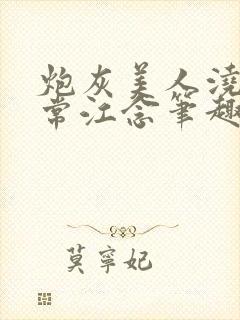 炮灰美人浇
常江念笔趣
莫寧妃